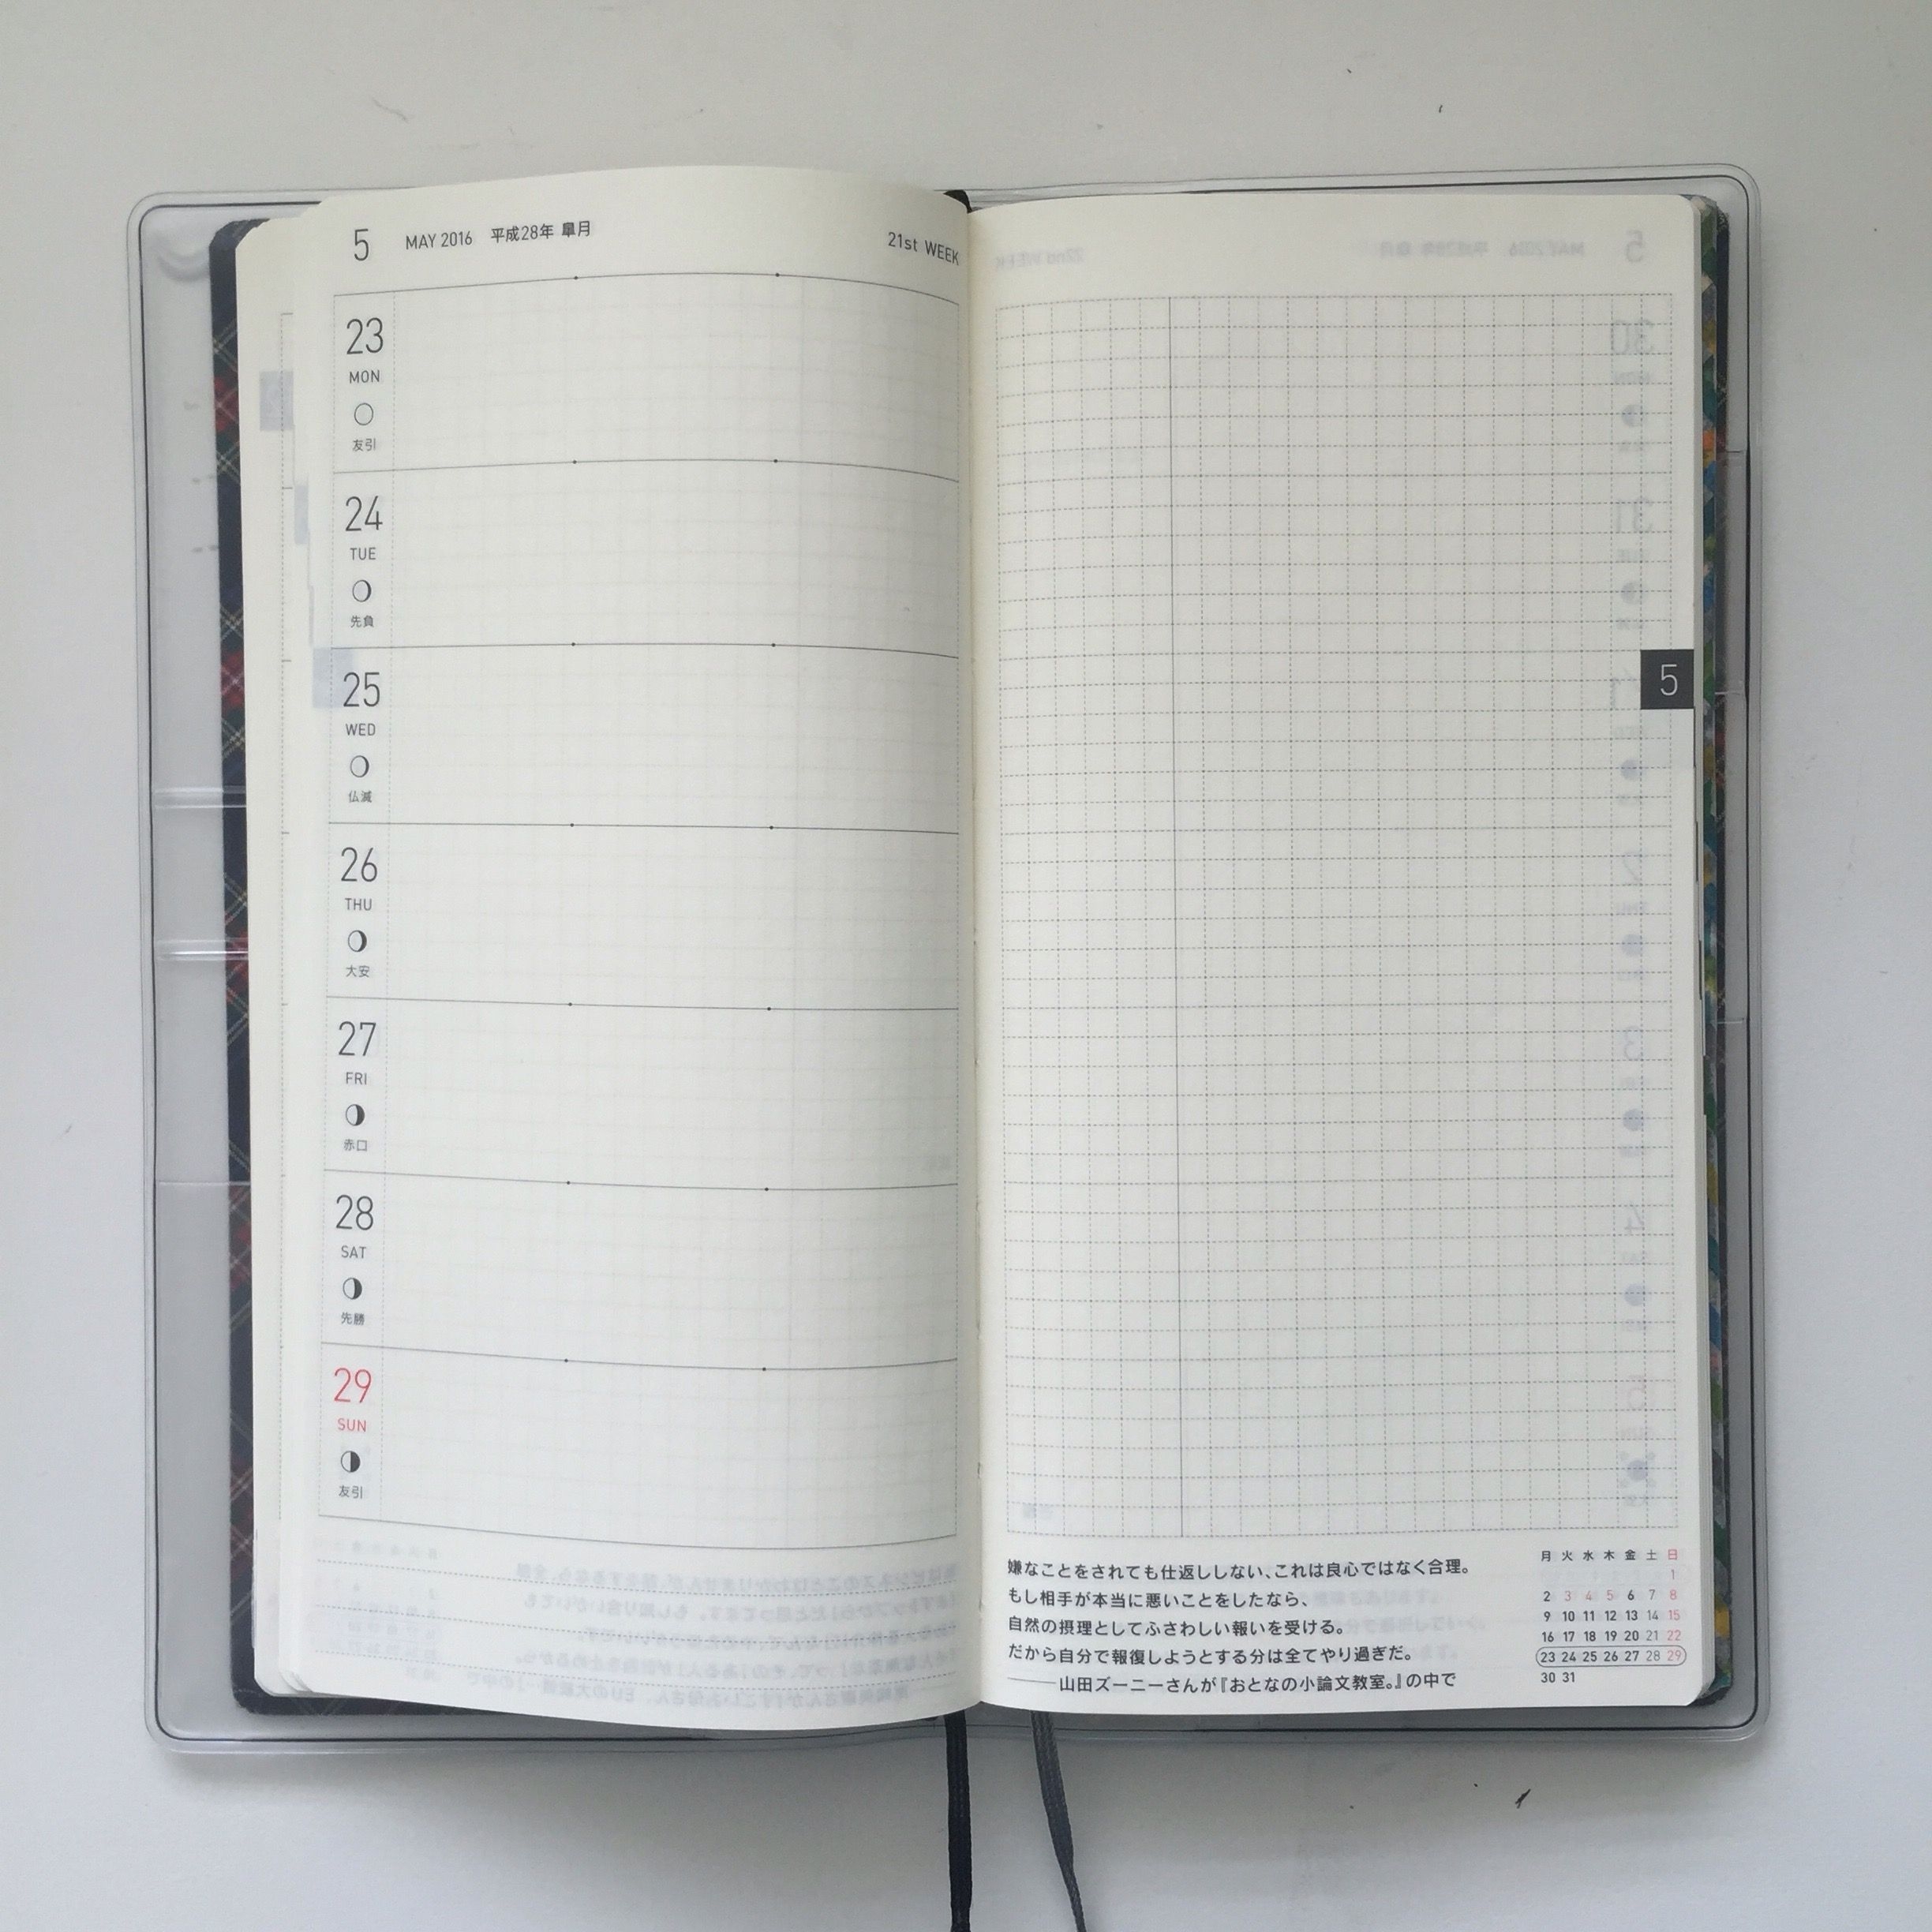 5 MAY 2016 平成28年 皐月 21st WEEK
23
MON
友引
24
TUE
先負
25
WED
仏滅
26
THU
大安
27
FRI
赤口
28
SAT
先勝
29
SUN
友引
5
嫌なことをされても仕返ししない、これは良心ではなく合理。
もし相手が本当に悪いことをしたなら、
自然の摂理としてふさわしい報いを受ける。
だから自分で報復しようとする分は全てやり過ぎだ。
――山田ズーニーさんが『おとなの小論文教室。』の中で
月 火 水 木 金 土 日
1
2 3 4 5 6 7 8
9 10 11 12 13 14 15
16 17 18 19 20 21 22
23 24 25 26 27 28 29
30 31